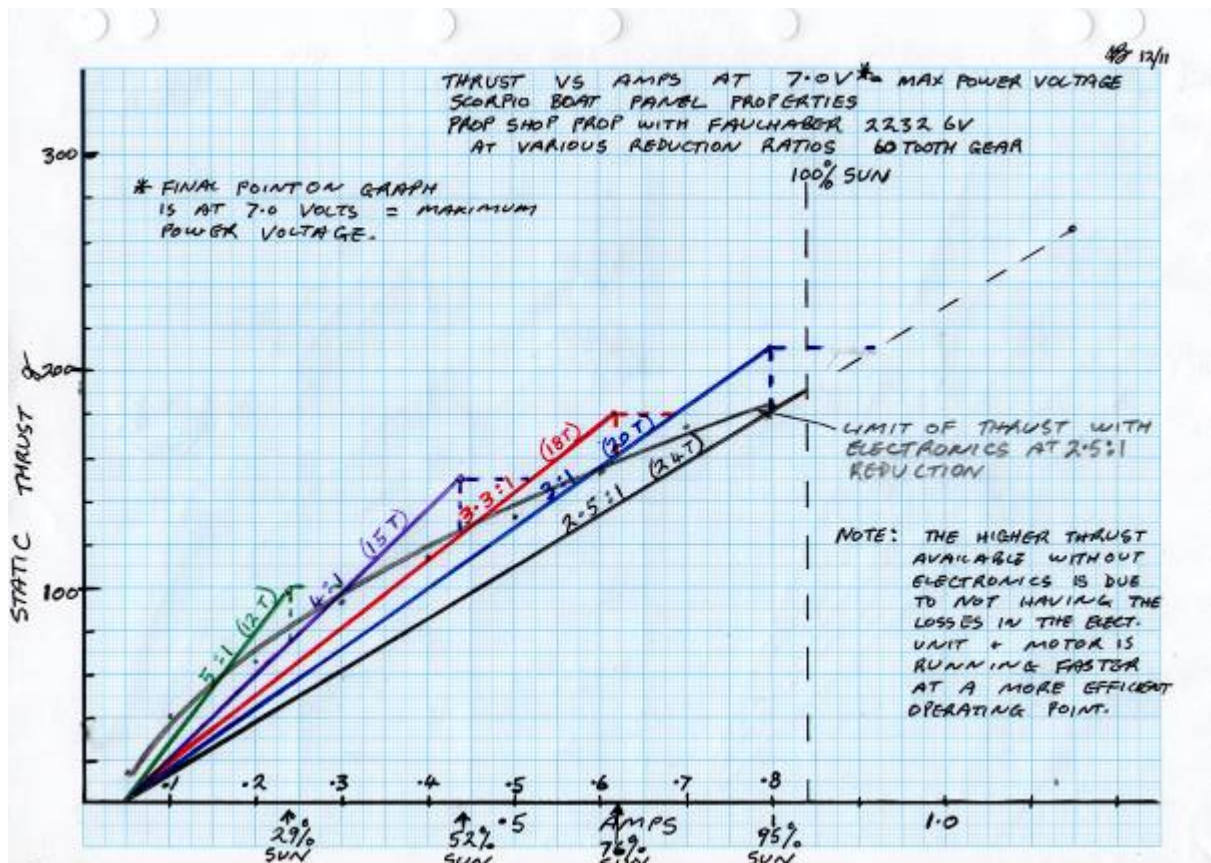 12/11
THRUST VS AMPS AT 7.0V* MAX POWER VOLTAGE
SCORPIO BOAT PANEL PROPERTIES
PROP SHOP PROP WITH FAULHABER 2232 6V
AT VARIOUS REDUCTION RATIOS 60 TOOTH GEAR
100% SUN
* FINAL POINT ON GRAPH
IS AT 7.0 VOLTS = MAXIMUM
POWER VOLTAGE.
300
200
100
STATIC THRUST g
5:1 (12T)
4:1 (15T)
3.3:1 (18T)
3:1 (20T)
2.5:1 (24T)
LIMIT OF THRUST WITH
ELECTRONICS AT 2.5:1
REDUCTION
NOTE: THE HIGHER THRUST
AVAILABLE WITHOUT
ELECTRONICS IS DUE
TO NOT HAVING THE
LOSSES IN THE ELECT.
UNIT + MOTOR IS
RUNNING FASTER
AT A MORE EFFICENT
OPERATING POINT.
.1 .2 .3 .4 .5 .6 .7 .8
.5 AMPS 1.0
29% SUN
52% SUN
76% SUN
95% SUN